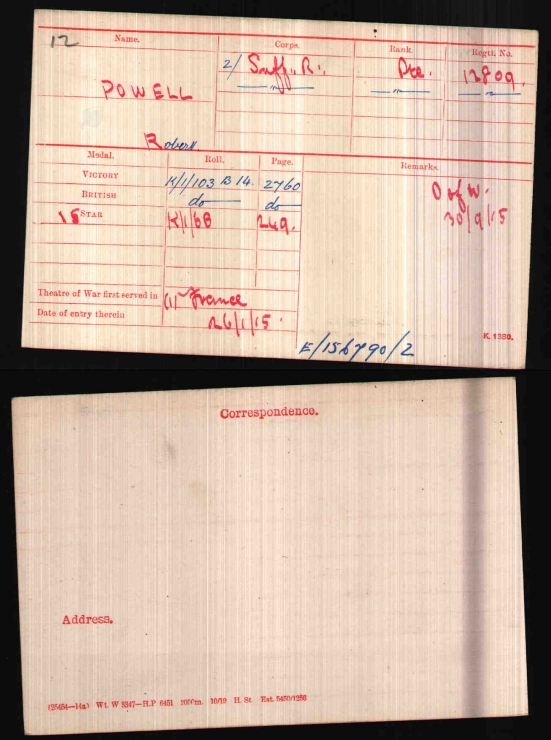 12
Name. Corps. Rank. Regtl. No.
2/ Suff. R. Pte. 12809.
POWELL —"— —"— —"—
Robert
Medal. Roll. Page. Remarks.
VICTORY K/1/103 B 14. 2760 D of W.
BRITISH do do 30/9/15
15 STAR K/1/6B 249.
Theatre of War first served in (1) France
Date of entry therein 26/1/15.
K. 1380.
E/156790/2
Correspondence.
Address.
(25454—14a) Wt. W 5347—H.P 6451 2000m. 10/19 H. St. Est. 5450/1250